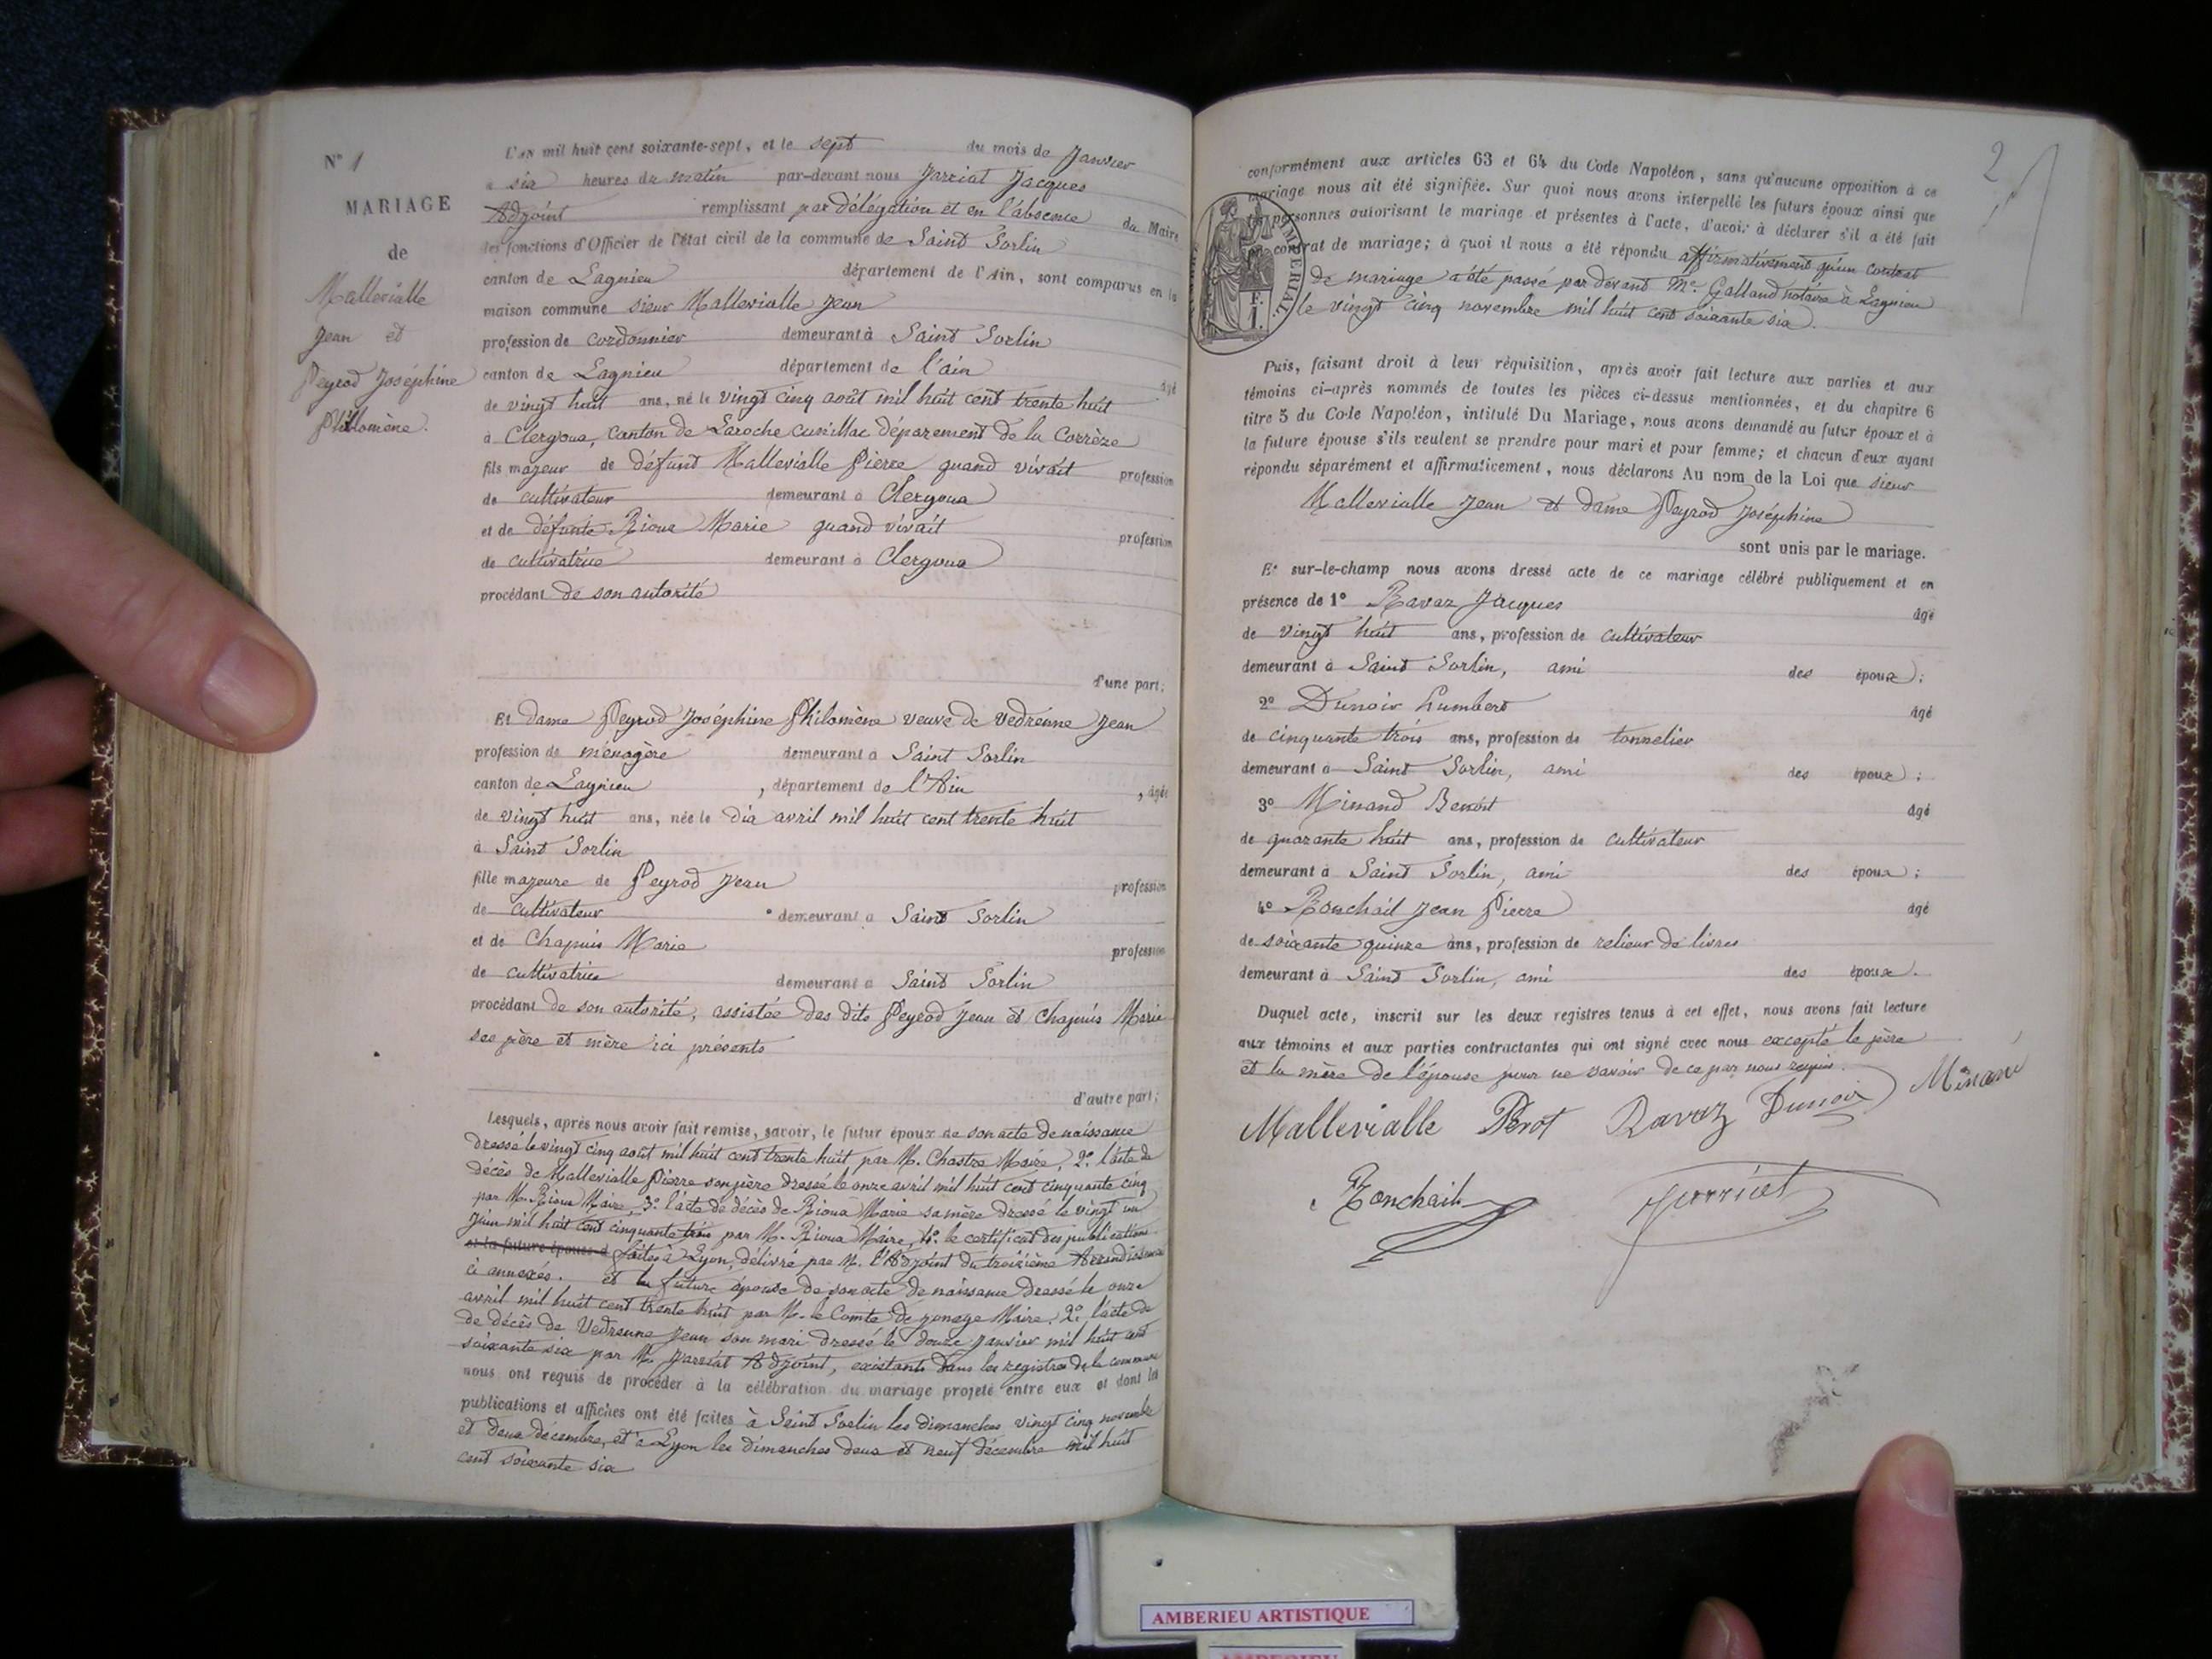 N° 1
MARIAGE
de
Mallevialle
Jean et
Peyrod Joséphine
Philomène.
L'AN mil huit cent soixante-sept, et le sept du mois de Janvier
à six heures du matin par-devant nous Jarriat Jacques
Adjoint remplissant par délégation et en l'absence du Maire
les fonctions d'Officier de l'état civil de la commune de Saint Sorlin
canton de Lagnieu département de l'Ain, sont comparus en la
maison commune sieur Mallevialle Jean
profession de cordonnier demeurant à Saint Sorlin
canton de Lagnieu département de l'ain âgé
de vingt huit ans, né le vingt cinq août mil huit cent trente huit
à Clergoux, Canton de Laroche Canillac département de la Corrèze
fils majeur de défunt Mallevialle Pierre quand vivait profession
de cultivateur demeurant à Clergoux
et de défunte Rioux Marie quand vivait profession
de cultivatrice demeurant à Clergoux
procédant de son autorité
d'une part;
Et dame Peyrod Joséphine Philomène veuve de Vedrenne Jean
profession de ménagère demeurant à Saint Sorlin
canton de Lagnieu, département de l'Ain, âgée
de vingt huit ans, née le dix avril mil huit cent trente huit
à Saint Sorlin
fille majeure de Peyrod Jean profession
de cultivateur demeurant à Saint Sorlin
et de Chapuis Marie profession
de cultivatrice demeurant à Saint Sorlin
procédant de son autorité, assistée des dits Peyrod Jean et Chapuis Marie
ses père et mère ici présents
d'autre part;
Lesquels, après nous avoir fait remise, savoir, le futur époux de son acte de naissance
dressé le vingt cinq août mil huit cent trente huit par M. Chastre Maire, 2° l'acte de
décès de Mallevialle Pierre son père dressé le onze avril mil huit cent cinquante cinq
par M. Rioux Maire, 3° l'acte de décès de Rioux Marie sa mère dressé le vingt un
Juin mil huit cent cinquante trois par M. Rioux Maire, 4° le certificat des publications
et la future épouse d faites à Lyon, délivré par M. l'Adjoint du troisième Arrondissement
ci annexés. et la future épouse de son acte de naissance dressé le onze
avril mil huit cent trente huit par M. le Comte de Maire, 2° l'acte de
de décès de Vedrenne Jean son mari dressé le douze Janvier mil huit cent
soixante six par M. Jarriat Adjoint, existants dans les registres de la commune
nous ont requis de procéder à la célébration du mariage projeté entre eux et dont les
publications et affiches ont été faites à Saint Sorlin les dimanches vingt cinq novembre
et deux décembre, et à Lyon les dimanches deux et neuf décembre mil huit
cent soixante six
2
conformément aux articles 63 et 64 du Code Napoléon, sans qu'aucune opposition à ce
mariage nous ait été signifiée. Sur quoi nous avons interpellé les futurs époux ainsi que
les personnes autorisant le mariage et présentes à l'acte, d'avoir à déclarer s'il a été fait
contrat de mariage; à quoi il nous a été répondu affirmativement qu'un contrat
de mariage a été passé par devant Me. Galland notaire à Lagnieu
le vingt cinq novembre mil huit cent soixante six.
IMPERIAL.
Puis, faisant droit à leur réquisition, après avoir fait lecture aux parties et aux
témoins ci-après nommés de toutes les pièces ci-dessus mentionnées, et du chapitre 6
titre 5 du Code Napoléon, intitulé Du Mariage, nous avons demandé au futur époux et à
la future épouse s'ils veulent se prendre pour mari et pour femme; et chacun d'eux ayant
répondu séparément et affirmativement, nous déclarons Au nom de la Loi que sieur
Mallevialle Jean et dame Peyrod Joséphine
sont unis par le mariage.
Et sur-le-champ nous avons dressé acte de ce mariage célébré publiquement et en
présence de 1° Ravaz Jacques âgé
de vingt huit ans, profession de cultivateur
demeurant à Saint Sorlin, ami des époux;
2° Dunoir Humbert âgé
de cinquante trois ans, profession de tonnelier
demeurant à Saint Sorlin, ami des époux;
3° Minand Benoît âgé
de quarante huit ans, profession de cultivateur
demeurant à Saint Sorlin, ami des époux;
4° Ronchail Jean Pierre âgé
de soixante quinze ans, profession de relieur de livres
demeurant à Saint Sorlin, ami des époux.
Duquel acte, inscrit sur les deux registres tenus à cet effet, nous avons fait lecture
aux témoins et aux parties contractantes qui ont signé avec nous excepté le père
et la mère de l'épouse pour ne savoir de ce par nous requis.
Mallevialle Perot Ravaz Dunoir Minand
Ronchail Jarriat
AMBERIEU ARTISTIQUE